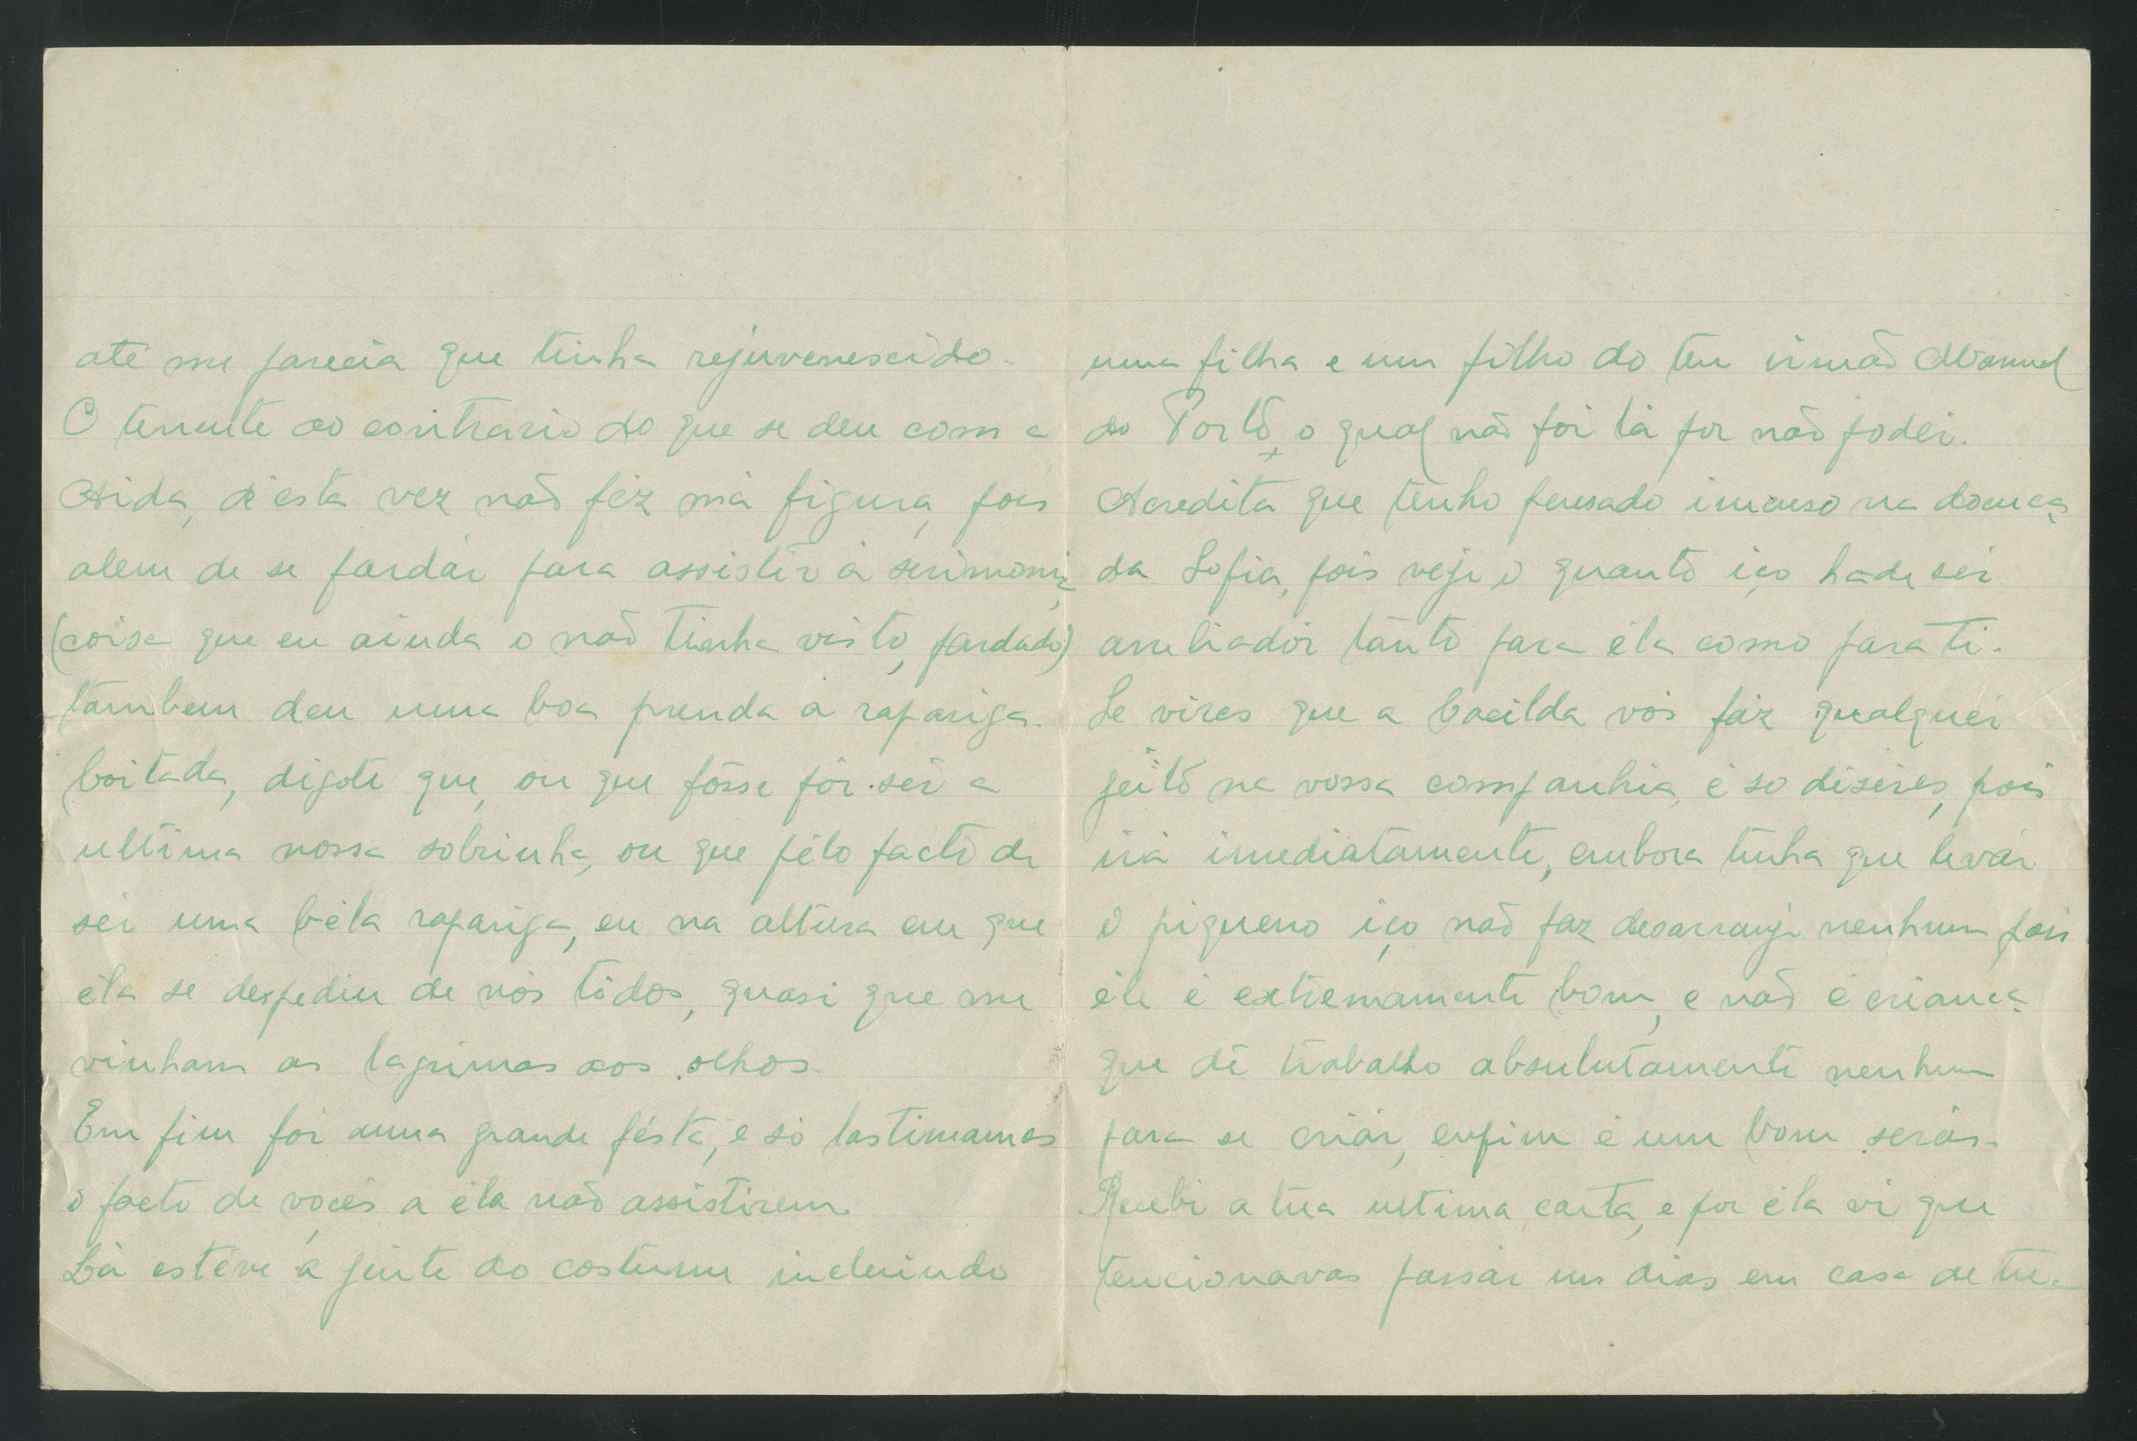 até me parecia que tinha rejuvenescido.
O tenente ao contrario do que se deu com a
Aida, d'esta vez não féz má figura, pois
alem de se fardár para assistir á serimonia,
(coisa que eu ainda o não tinha visto, fardado)
tâmbem deu uma boa prenda á rapariga.
Coitada, digote que, ou que fôsse pôr sêr a
ultima nossa sobrinha, ou que pélo facto de
sêr uma béla rapariga, eu na altura em que
éla se despediu de nós tôdos, quasi que me
vinham as lagrimas aos olhos.
Em fim foi uma grande fésta, e só lastimamos
o facto de vocês a éla não assistirem.
Lá estéve a jente do costume incluindo
uma filha e um filho do teu irmão Manuel
do Portô, o qual não foi lá por não podêr.
Acredita que tenho pensado imenso na doença
da Sofia, pois vejo o quanto iço hade sêr
arreliadôr tânto para éla como para ti.
Se vires que a Cacilda vos fáz qualquér
jeitô na vossa companhia, é so diseres, pois
irá imediatamente, embora tenha que levár
o piqueno iço não faz desarranjo nenhum pois
êle é extremamente bom, e não é criança
que dê trabalho absulutamente nenhum
para se criár, enfim é um bom serás.
Recebi a tua ultima carta, e por éla vi que
tencionavas passár uns dias em casa de tua